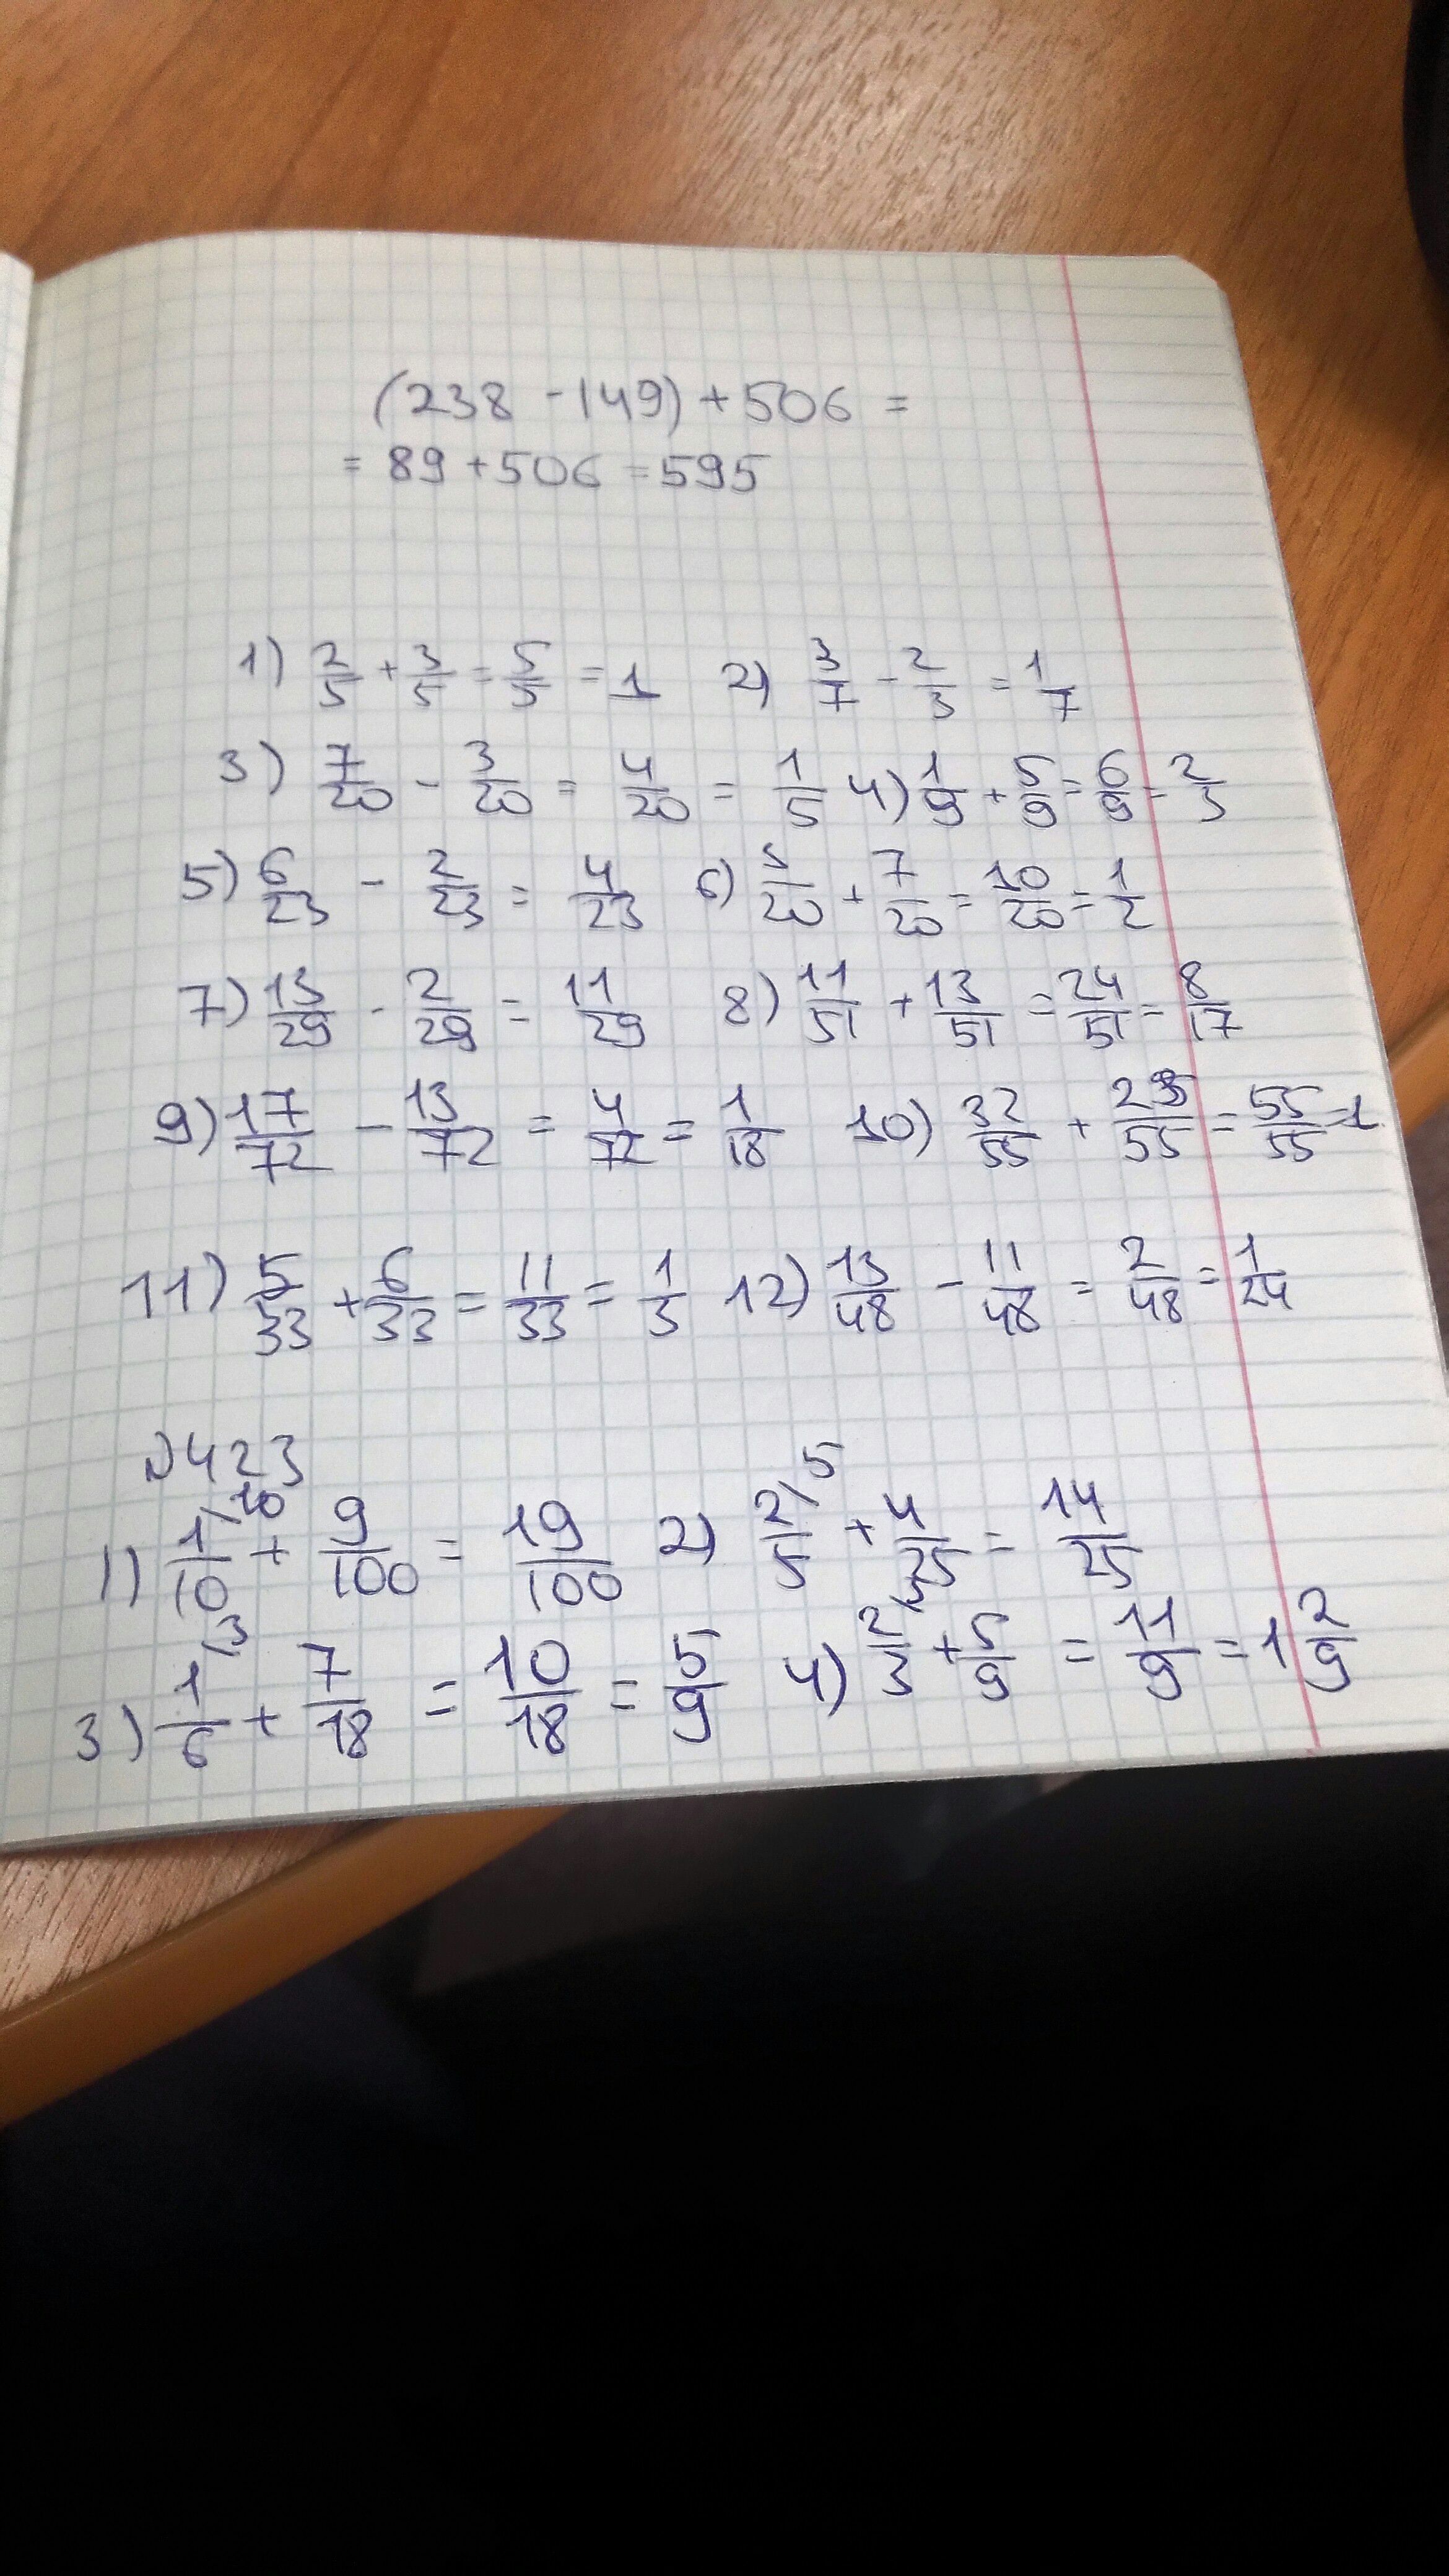 (238 - 149) + 506 =
= 89 + 506 = 595
1) 2/5 + 3/5 = 5/5 = 1 2) 3/7 - 2/3 = 1/7
3) 7/20 - 3/20 = 4/20 = 1/5 4) 1/9 + 5/9 = 6/9 = 2/3
5) 6/23 - 2/23 = 4/23 6) 3/20 + 7/20 = 10/20 = 1/2
7) 13/29 - 2/29 = 11/29 8) 11/51 + 13/51 = 24/51 = 8/17
9) 17/72 - 13/72 = 4/72 = 1/18 10) 32/55 + 23/55 = 55/55 = 1
11) 5/33 + 6/33 = 11/33 = 1/3 12) 13/48 - 11/48 = 2/48 = 1/24
№423
1) 1/10 \10 + 9/100 = 19/100 2) 2/5 \5 + 4/25 = 14/25
3) 1/6 \3 + 7/18 = 10/18 = 5/9 4) 2/3 \3 + 5/9 = 11/9 = 1 2/9